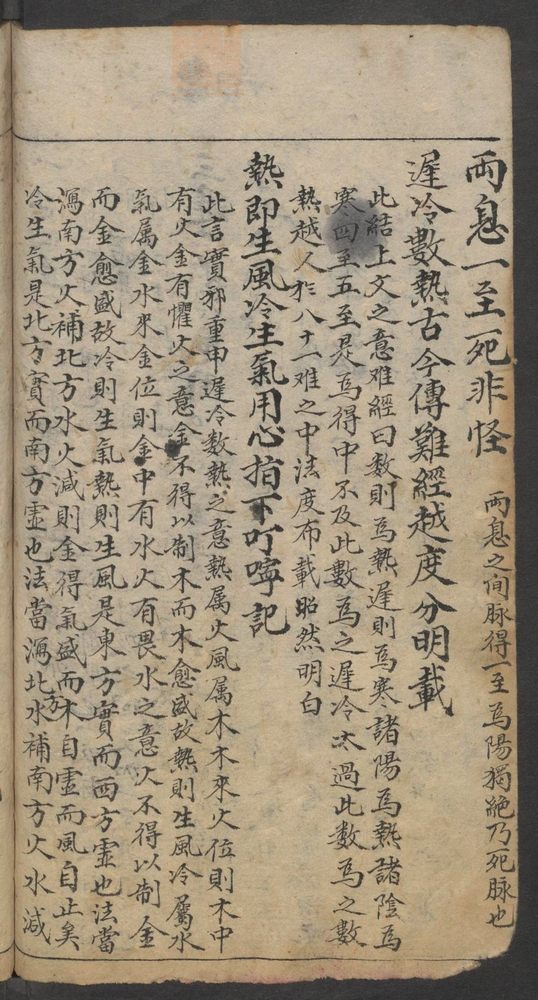 兩息一至死非怪 兩息之间脉得一至為陽獨絶乃死脉也
遲冷數熱古今傳難經越度分明載
此結上文之意难經曰数則為熱遲則為寒諸陽為熱諸陰為
寒四至五至是為得中不及此數為之遲冷太過此数為之數
熱越人於八十一难之中法度布載昭然明白
熱即生風冷生氣用心指下叮嚀記
此言實邪重申遲冷数熱之意熱属火風属木木來火位則木中
有火金有懼火之意金不得以制木而木愈盛故熱則生風冷屬水
氣属金水來金位則金中有水火有畏水之意火不得以制金
而金愈盛故冷則生氣熱則生風是東方實而西方虛也法當
瀉南方火補北方水火減則金得氣盛而木自虛而風自止矣
冷生氣是北方實而南方虛也法當瀉北方水補南方火水減